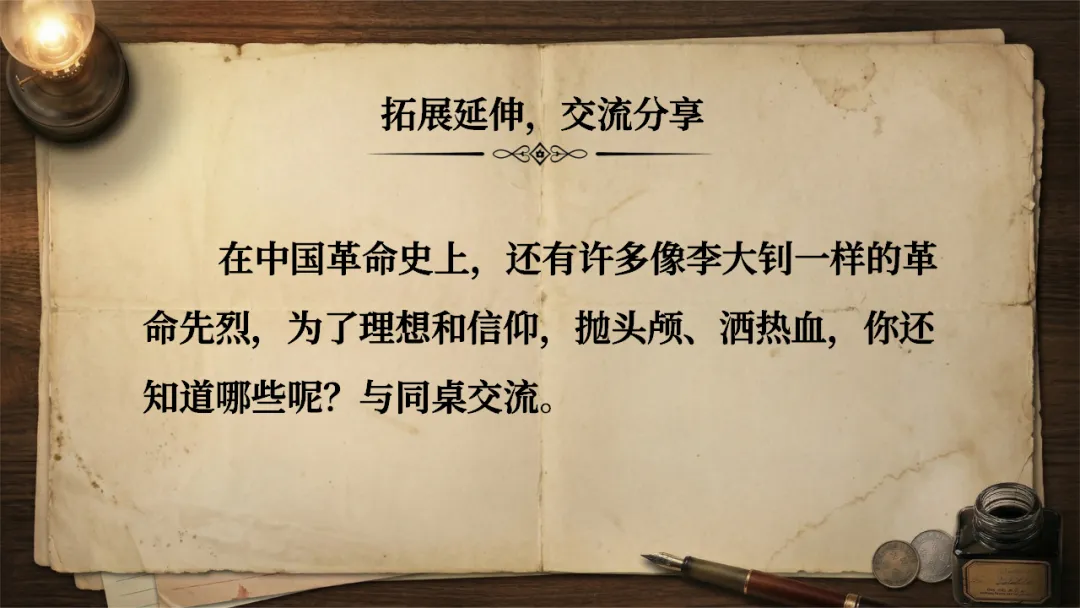 拓展延伸，交流分享
在中国革命史上，还有许多像李大钊一样的革
命先烈，为了理想和信仰，抛头颅、洒热血，你还
知道哪些呢？与同桌交流。